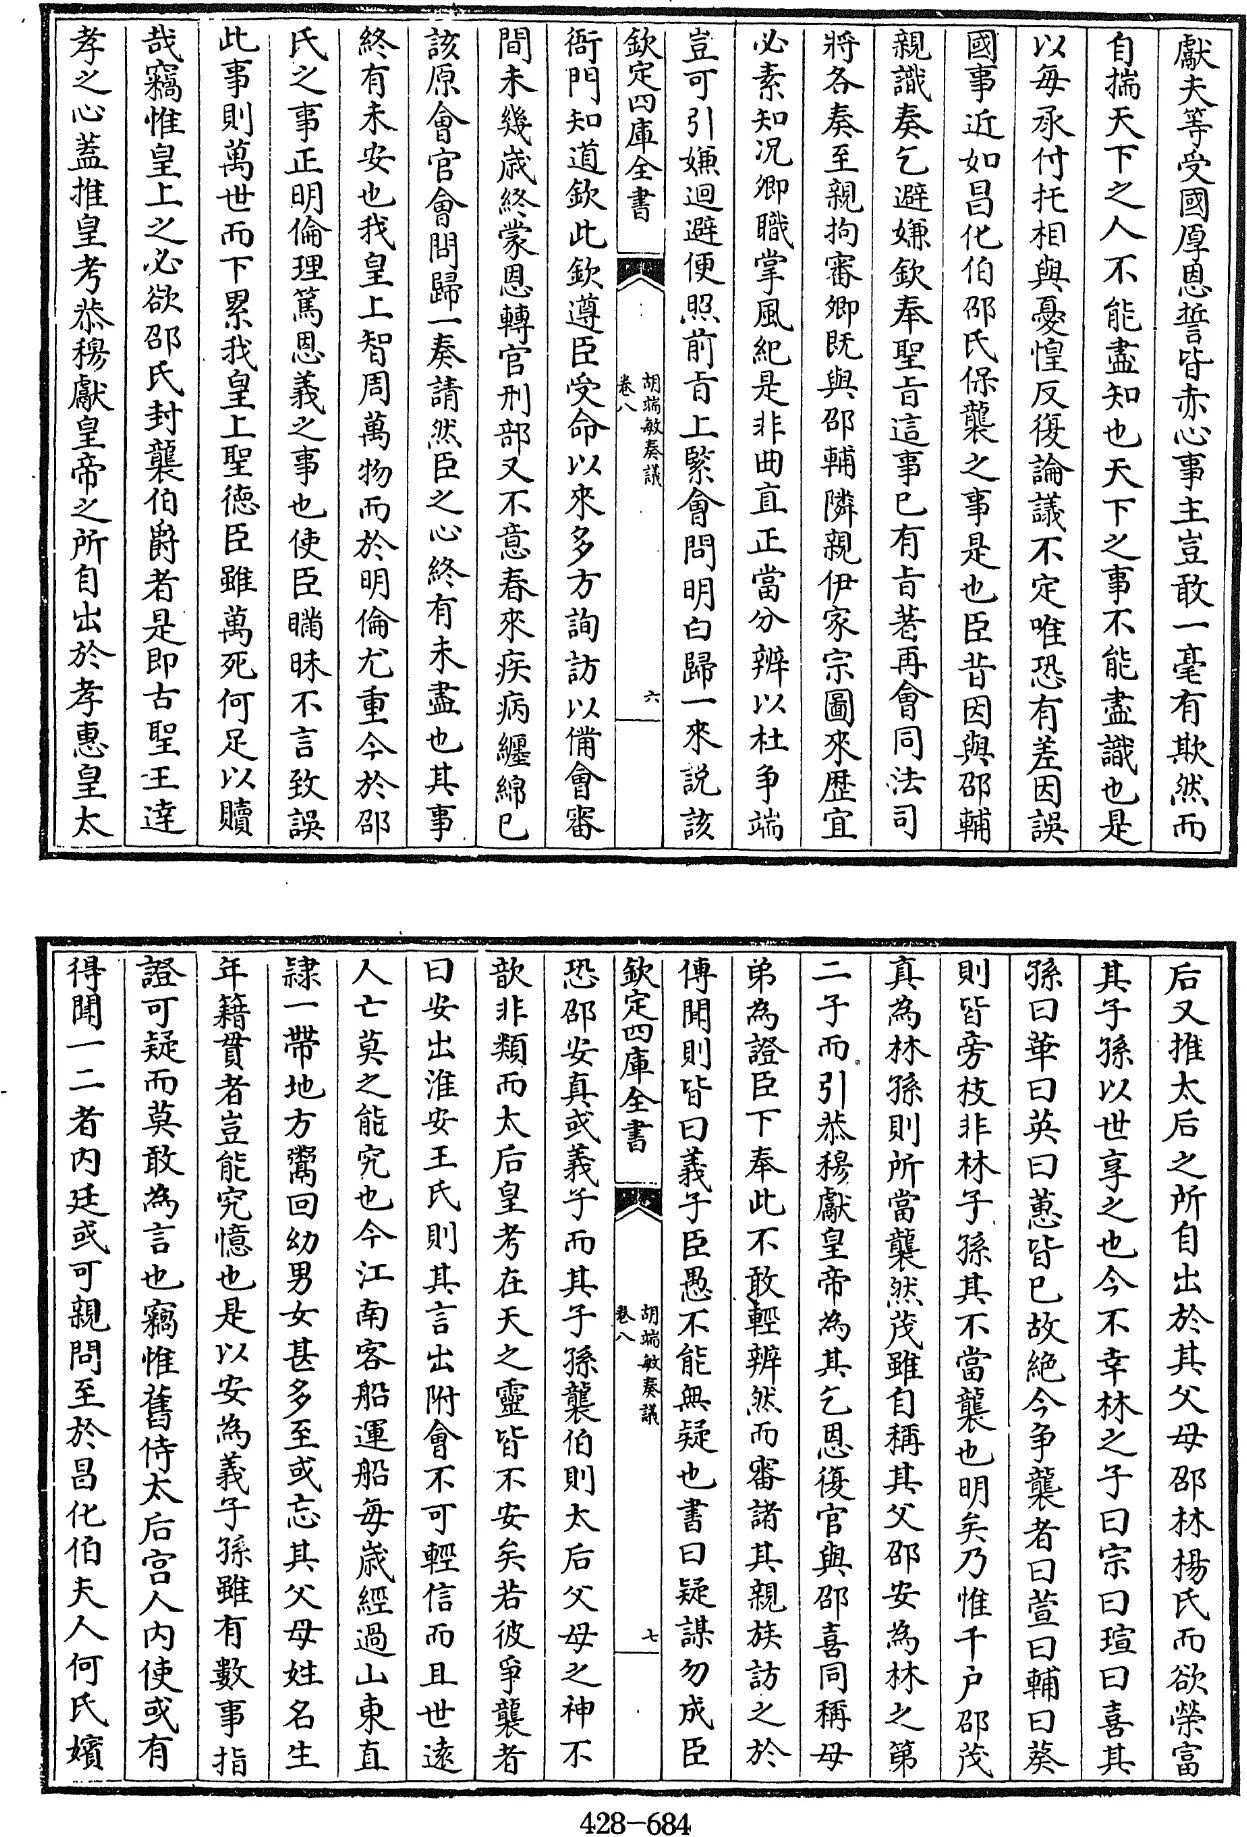 獻夫等受國厚恩誓皆赤心事主豈敢一毫有欺然而
自揣天下之人不能盡知也天下之事不能盡識也是
以每承付托相與憂惶反復論議不定唯恐有差因誤
國事近如昌化伯邵氏保襲之事是也臣昔因與邵輔
親識奏乞避嫌欽奉聖旨這事已有旨著再會同法司
將各奏至親拘審卿既與邵輔隣親伊家宗圖來歷宜
必素知况卿職掌風紀是非曲直正當分辨以杜争端
豈可引嫌迴避便照前旨上緊會問明白歸一來説該
欽定四庫全書
胡端敏奏議
卷八
六
衙門知道欽此欽遵臣受命以來多方詢訪以備會審
間未幾歲終蒙恩轉官刑部又不意春來疾病纒綿已
該原會官會問歸一奏請然臣之心終有未盡也其事
終有未安也我皇上智周萬物而於明倫尤重今於邵
氏之事正明倫理篤恩義之事也使臣瞞昧不言致誤
此事則萬世而下累我皇上聖德臣雖萬死何足以贖
哉竊惟皇上之必欲邵氏封襲伯爵者是即古聖王達
孝之心蓋推皇考恭穆獻皇帝之所自出於孝惠皇太
后又推太后之所自出於其父母邵林楊氏而欲榮富
其子孫以世享之也今不幸林之子曰宗曰瑄曰喜其
孫曰華曰英曰蕙皆已故絶今争襲者曰萱曰輔曰葵
則皆旁枝非林子孫其不當襲也明矣乃惟千户邵茂
真為林孫則所當襲然茂雖自稱其父邵安為林之第
二子而引恭穆獻皇帝為其乞恩復官與邵喜同稱母
弟為證臣下奉此不敢輕辨然而審諸其親族訪之於
傳聞則皆曰義子臣愚不能無疑也書曰疑謀勿成臣
欽定四庫全書
胡端敏奏議
卷八
七
恐邵安真或義子而其子孫襲伯則太后父母之神不
歆非類而太后皇考在天之靈皆不安矣若彼爭襲者
曰安出淮安王氏則其言出附會不可輕信而且世遠
人亡莫之能究也今江南客船運船每歲經過山東直
隷一帶地方鬻回幼男女甚多至或忘其父母姓名生
年籍貫者豈能究憶也是以安為義子孫雖有數事指
證可疑而莫敢為言也竊惟舊侍太后宫人内使或有
得聞一二者内廷或可親問至於昌化伯夫人何氏嬪
428-684